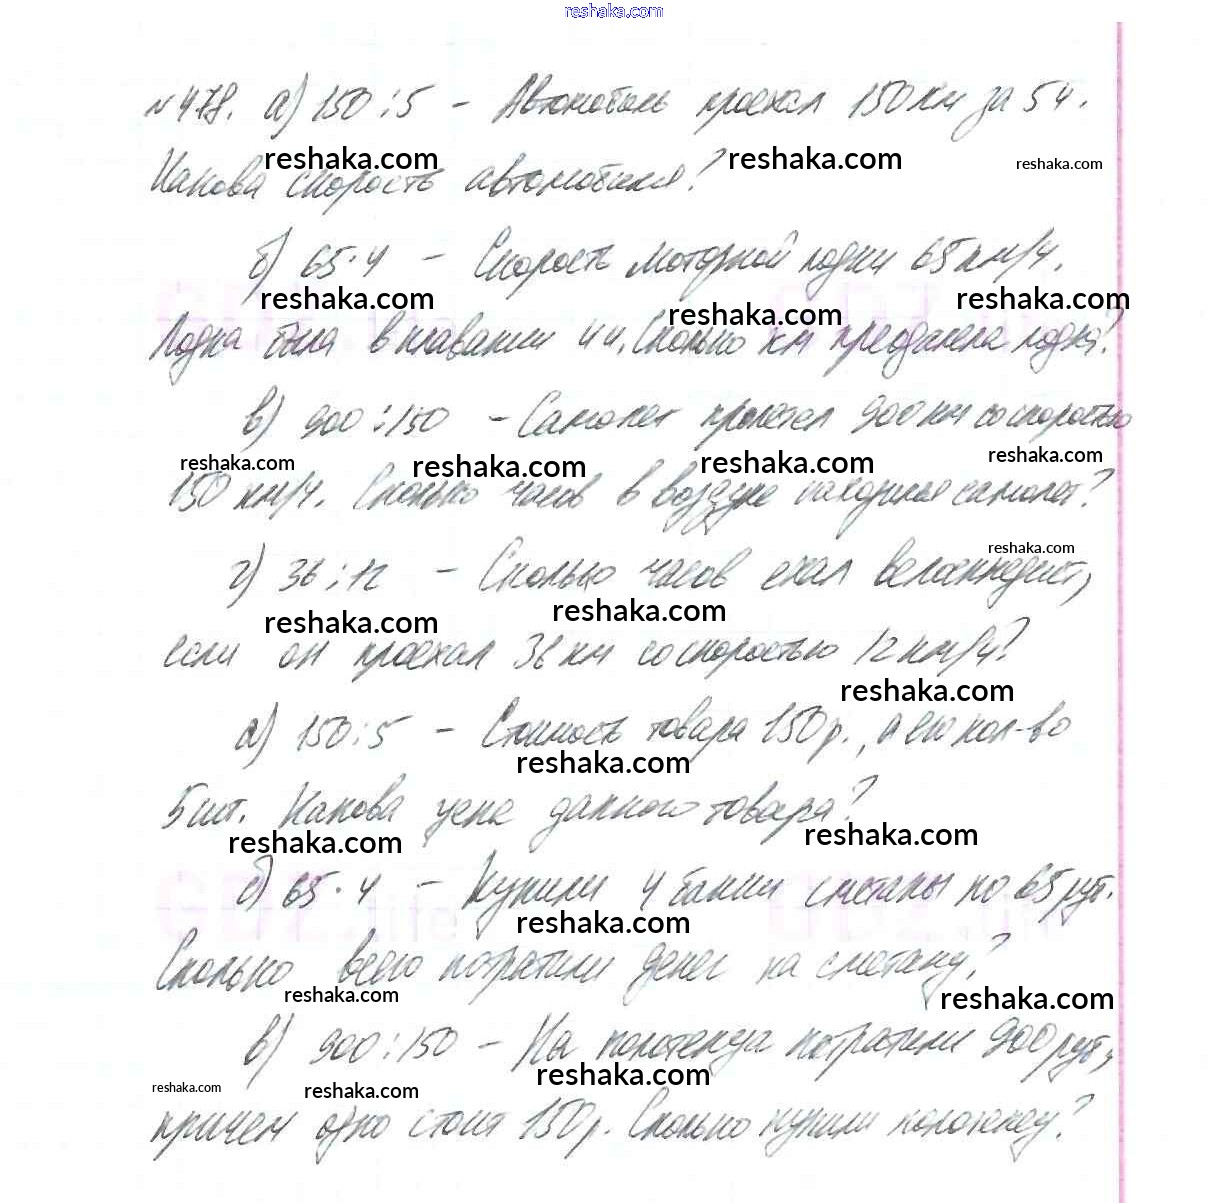 reshaka.com
№478. а) 150 : 5 – Автомобиль проехал 150 км за 5 ч.
reshaka.com reshaka.com reshaka.com
Какова скорость автомобиля?
б) 65 · 4 – Скорость моторной лодки 65 км/ч.
reshaka.com reshaka.com reshaka.com
Лодка была в плавании 4 ч. Сколько км преодолела лодка?
в) 900 : 150 – Самолет пролетел 900 км со скоростью
reshaka.com reshaka.com reshaka.com reshaka.com
150 км/ч. Сколько часов в воздухе находился самолет?
reshaka.com
г) 36 : 12 – Сколько часов ехал велосипедист,
reshaka.com reshaka.com
если он проехал 36 км со скоростью 12 км/ч?
reshaka.com
а) 150 : 5 – Стоимость товара 150 р., а его кол-во
reshaka.com
5 шт. Какова цена данного товара?
reshaka.com reshaka.com
б) 65 · 4 – Купили 4 банки сметаны по 65 руб.
GDZ.life reshaka.com GDZ.life
Сколько всего потратили денег на сметану?
reshaka.com reshaka.com
в) 900 : 150 – На полотенца потратили 900 руб,
reshaka.com reshaka.com reshaka.com
причем одно стоит 150 р. Сколько купили полотенец?